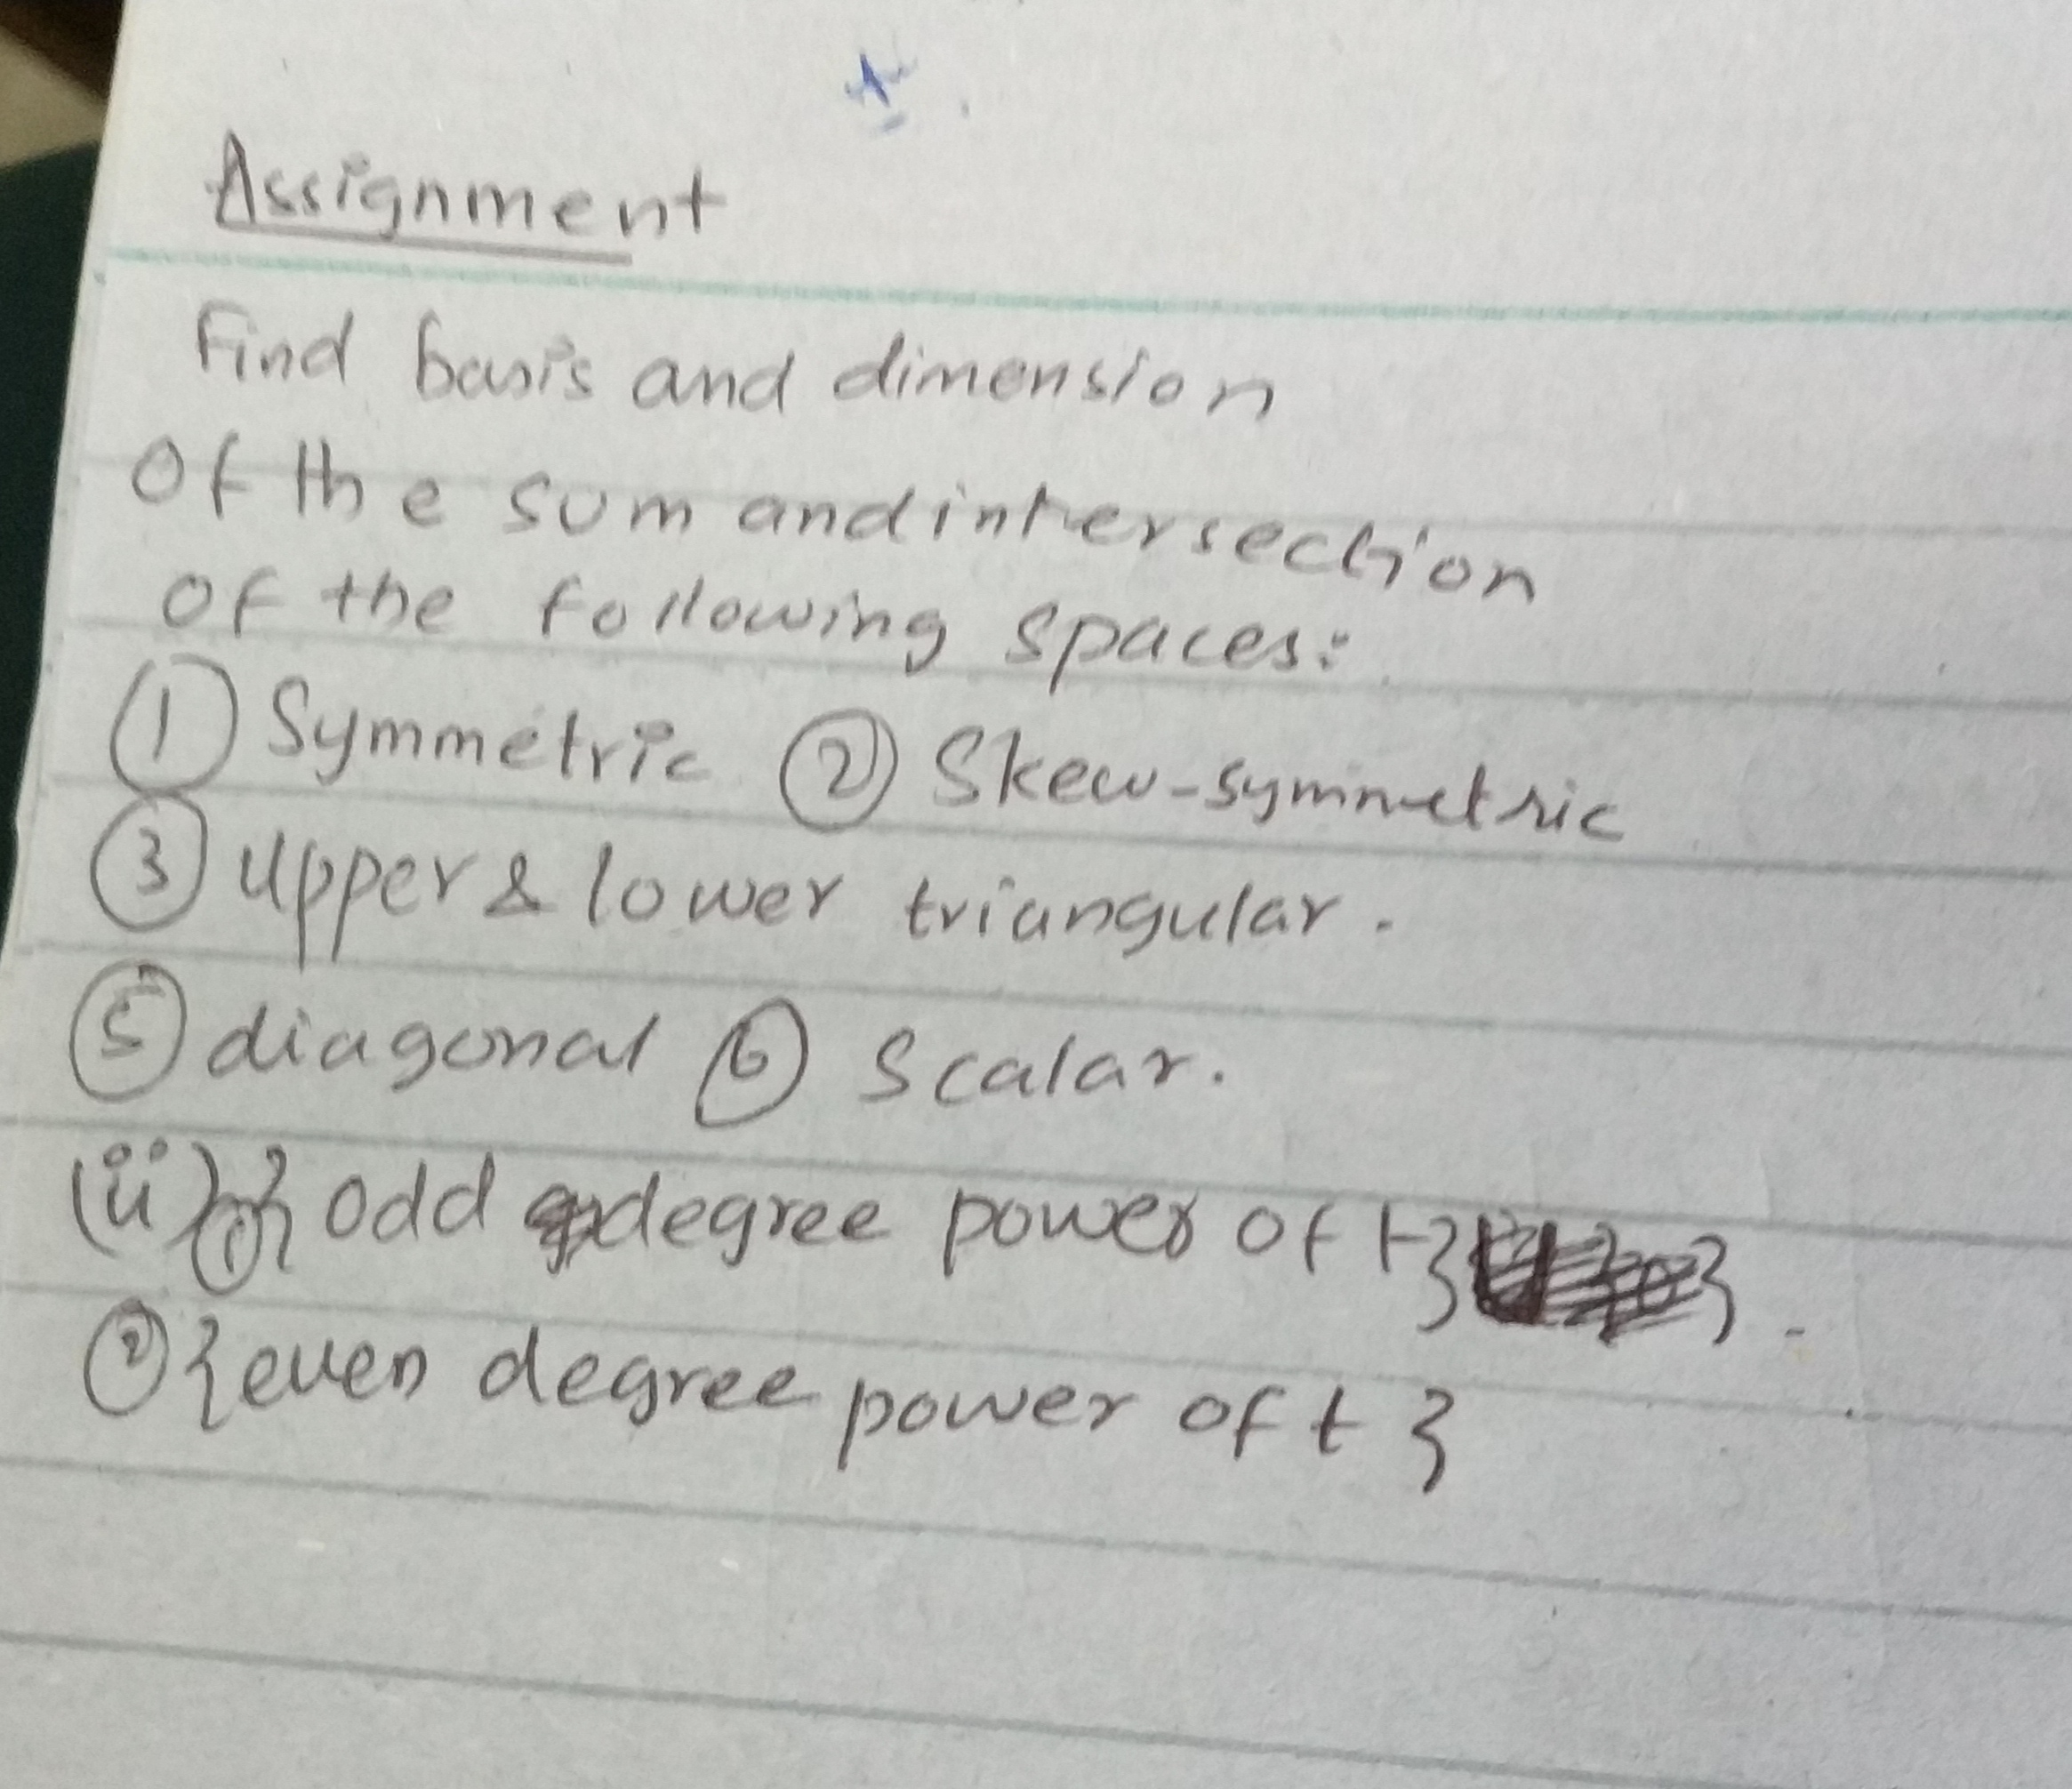 Assignment
Find basis and dimension
of the sum and intersection
of the following spaces:
① Symmetric ② Skew-symmetric
③ Upper & lower triangular.
⑤ diagonal ⑥ Scalar.
(ii) ① { odd degree power of t}
② {even degree power of t}